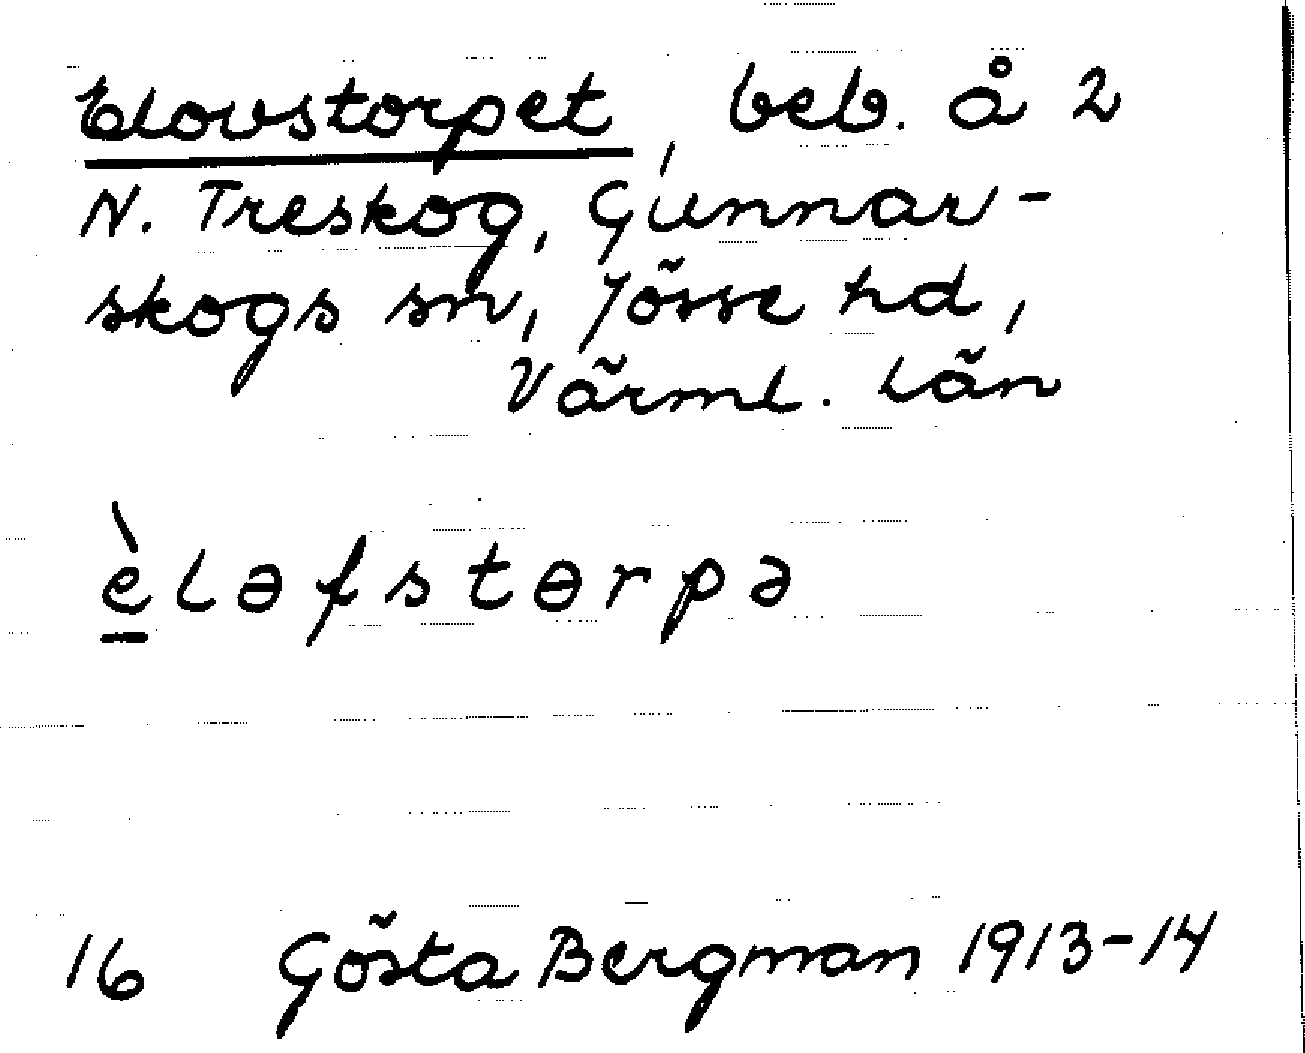 Elovstorpet, beb. å 2
N. Treskog, Gunnar-
skogs sn, Jösse hd,
Värml. län
èləfstɵrpə
16 Gösta Bergman 1913-14